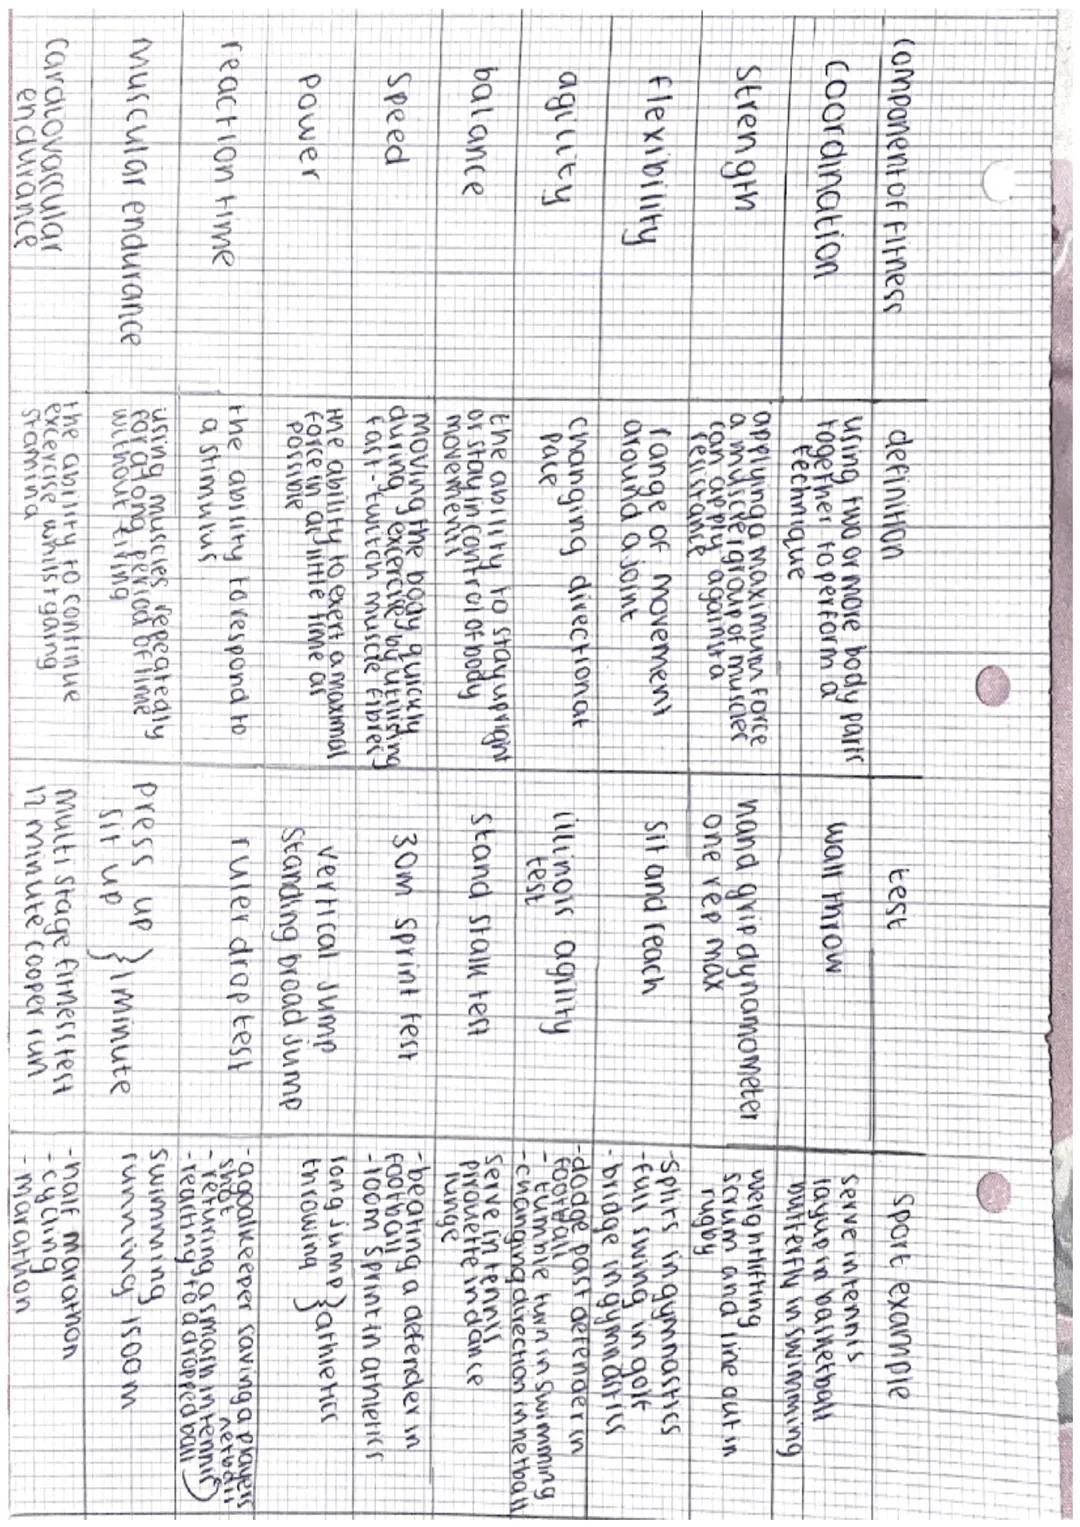 component of fitness
definition
test
sport example
coordination
using two or more body parts
together to perform a
technique
wall throw
serve in tennis
layups in basketball
butterfly in swimming
strength
applying a maximum force
a muscle/group of muscles
can apply against a
resistance
hand grip dynamometer
one rep max
weightlifting
scrum and line out in
rugby
flexibility
range of movement
around a joint
sit and reach
-splits in gymnastics
-full swing in golf
-bridge in gymnastics
agility
changing direction at
pace
illinois agility
test
-dodge past defender in
football
-tumble turn in swimming
-changing direction in netball
balance
the ability to stay upright
or stay in control of body
movements
stand stalk test
serve in tennis
pirouette in dance
lunge
speed
moving the body quickly
during excercise by utilising
fast-twitch muscle fibres
30m sprint test
-beating a defender in
football
-100m sprint in athletics
power
the ability to exert a maximal
force in as little time as
possible
vertical jump
standing broad jump
long jump } athletics
throwing
reaction time
the ability to respond to
a stimulus
ruler drop test
-a goalkeeper saving a players
shot
-returning a smash in tennis
-reacting to a dropped ball
netball
muscular endurance
using muscles repeatedly
for a long period of time
without tiring
press up } 1 minute
sit up
swimming
running 1500m
cardiovascular
endurance
the ability to continue
excercise whilst gaining
stamina
multi stage fitness test
12 minute cooper run
-half marathon
-cycling
-marathon